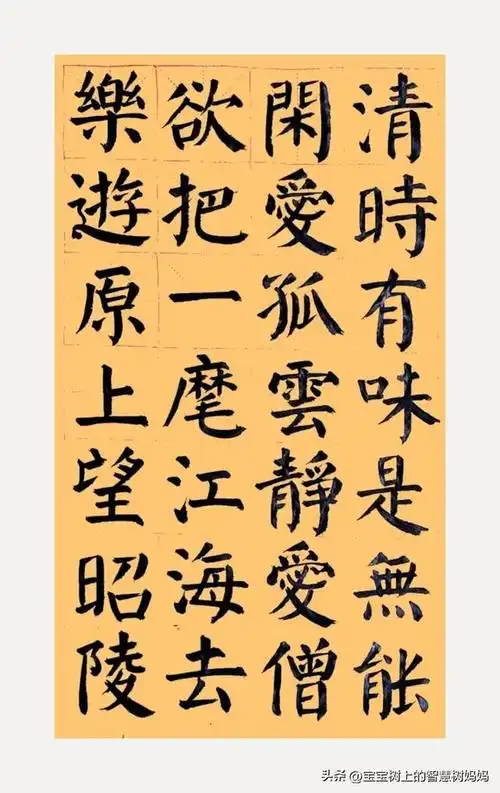 清時有味是無能
閑愛孤雲靜愛僧
欲把一麾江海去
樂遊原上望昭陵
头条 @宝宝树上的智慧树妈妈